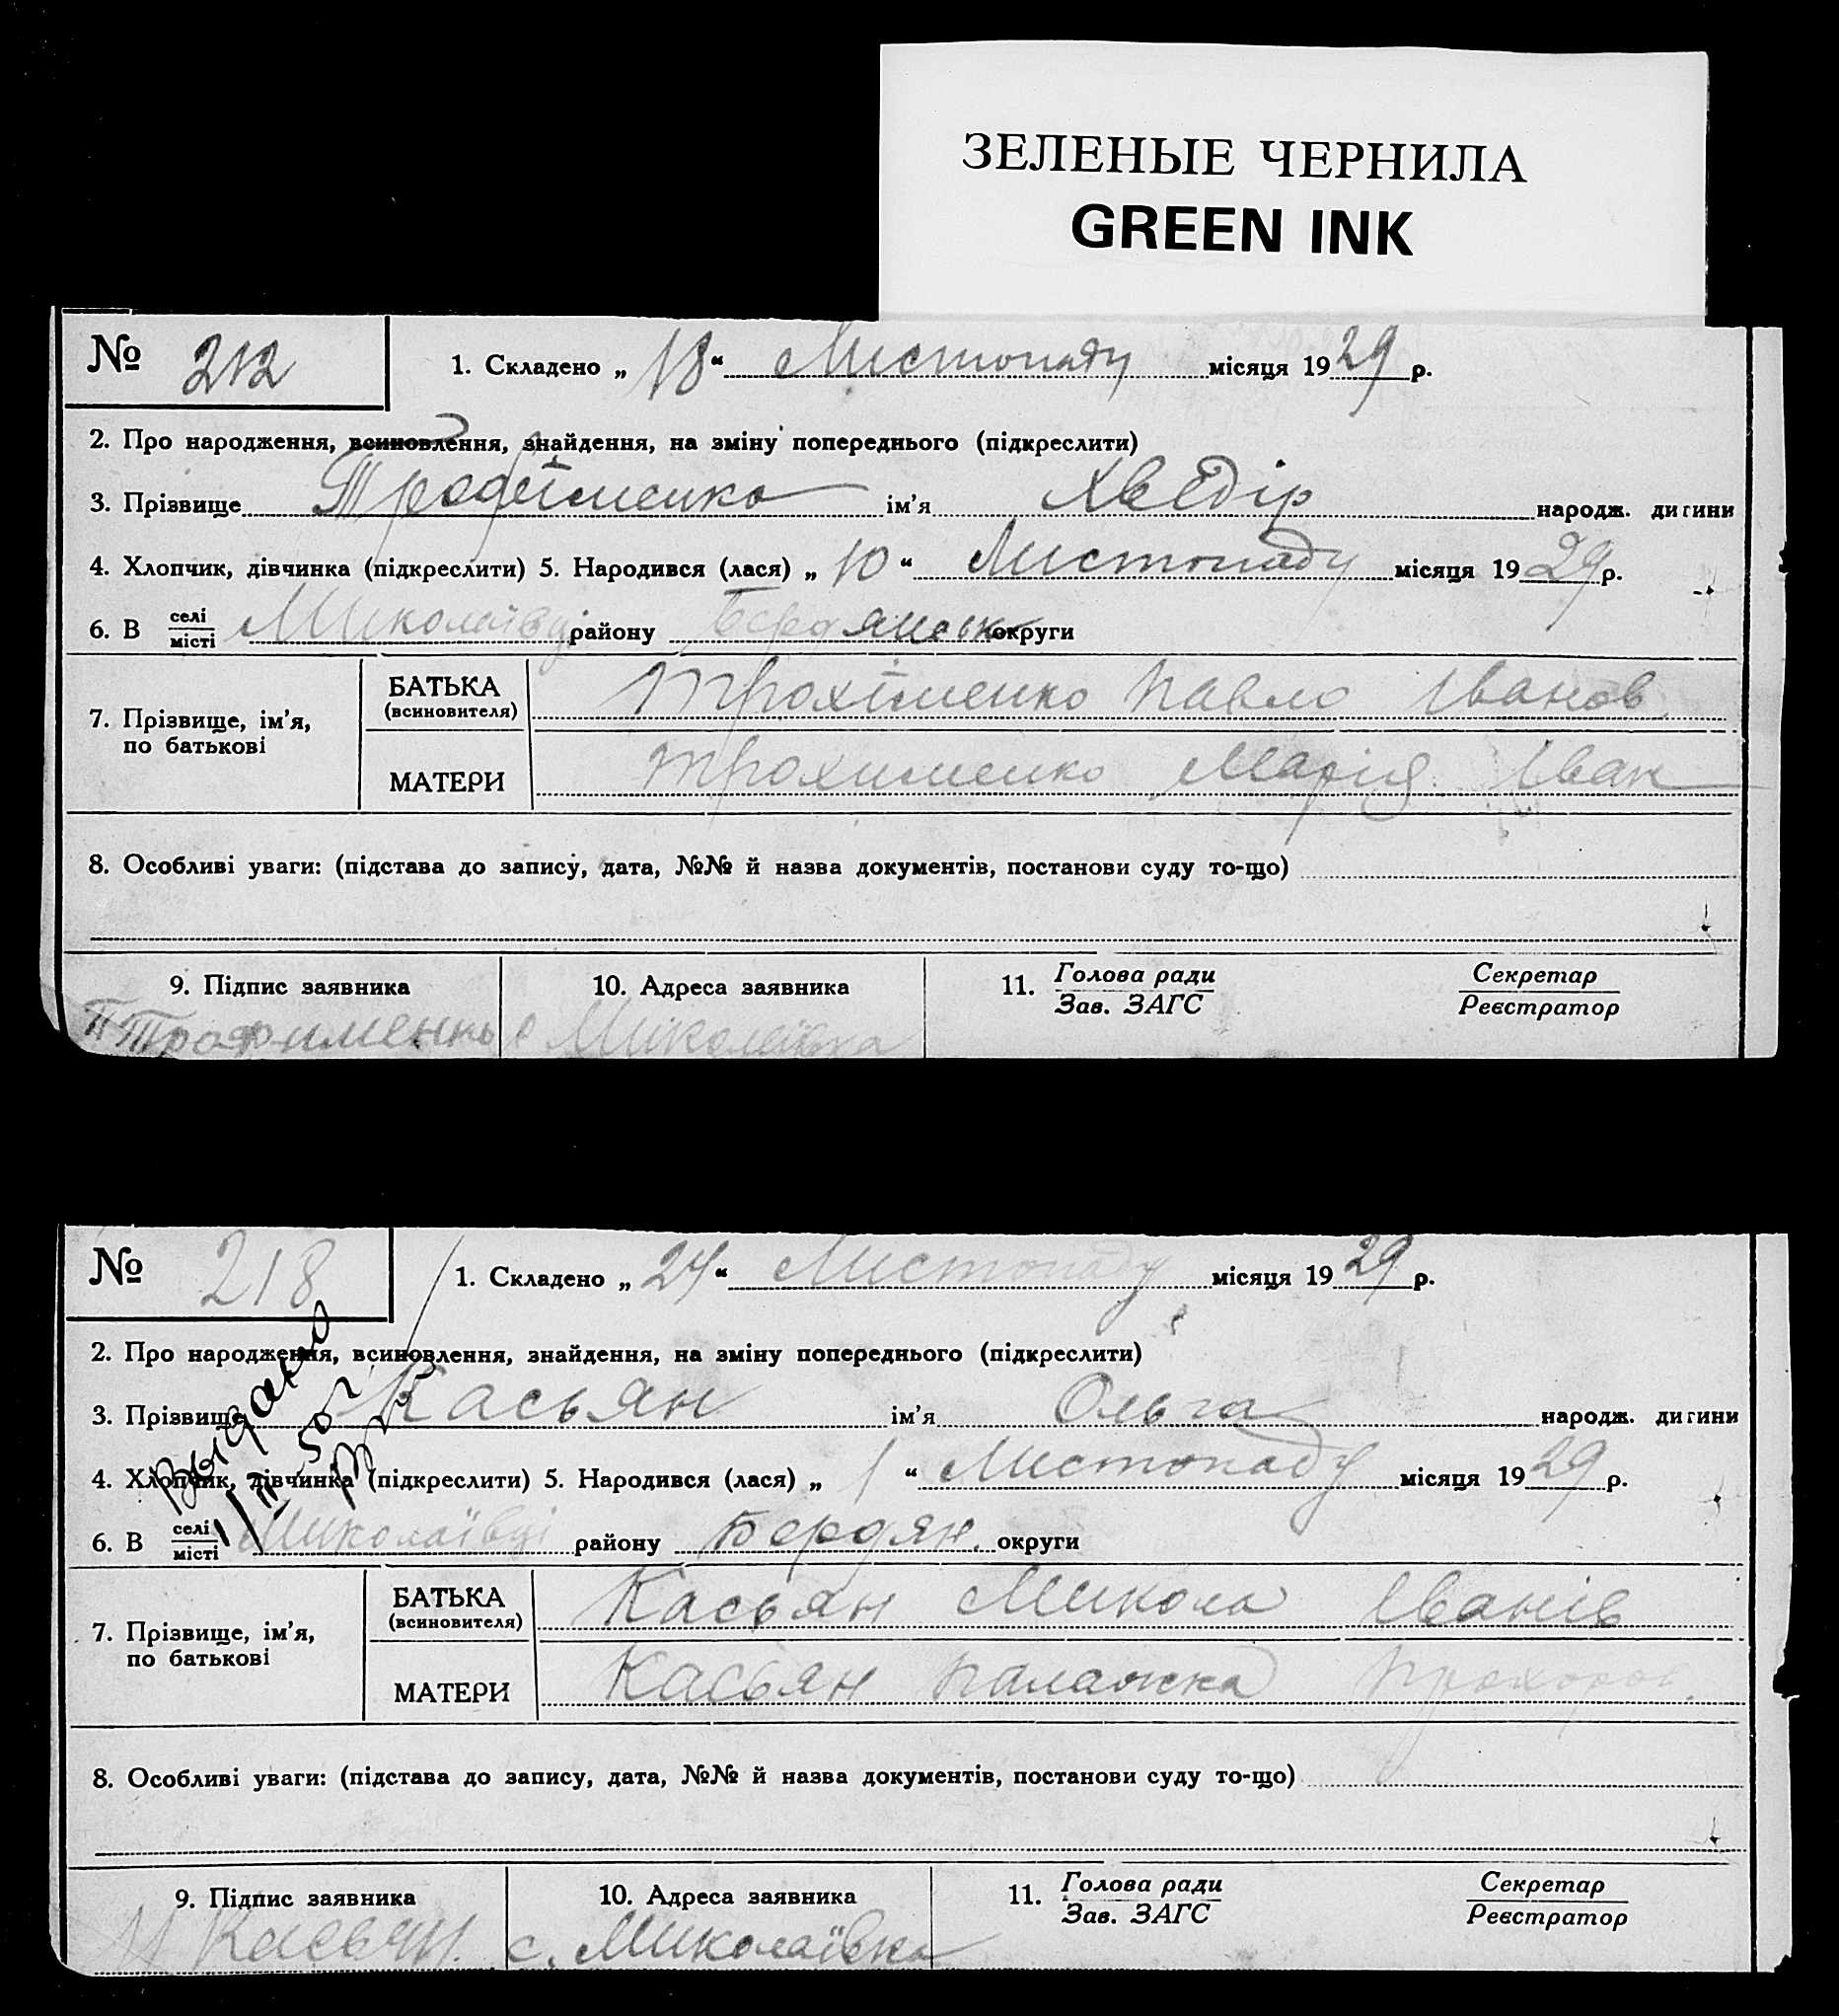 ЗЕЛЕНЫЕ ЧЕРНИЛА
GREEN INK
№ 212
1. Складено „18“ Листопаду місяця 1929 р.
2. Про народження, всиновлення, знайдення, на зміну попереднього (підкреслити)
3. Прізвище Трофіменко ім'я Хведір народж. дитини
4. Хлопчик, дівчинка (підкреслити) 5. Народився (лася) „10“ Листопаду місяця 1929 р.
6. В селі/місті Миколаївці району Бердянськ округи
7. Прізвище, ім'я, по батькові
БАТЬКА (всиновителя) Трохіменко Павло Іванов.
МАТЕРИ Трохименко Марія Іван
8. Особливі уваги: (підстава до запису, дата, №№ й назва документів, постанови суду то-що)
9. Підпис заявника
10. Адреса заявника
11. Голова ради/Зав. ЗАГС
Секретар/Реєстратор
П Трофименко
с Миколаївка
№ 218
1. Складено „24“ Листопаду місяця 1929 р.
2. Про народження, всиновлення, знайдення, на зміну попереднього (підкреслити)
3. Прізвище Касьян ім'я Ольга народж. дитини
4. Хлопчик, дівчинка (підкреслити) 5. Народився (лася) „1“ Листопаду місяця 1929 р.
6. В селі/місті Миколаївці району Бердян. округи
Выдано
1/II 50 г
7. Прізвище, ім'я, по батькові
БАТЬКА (всиновителя) Касьян Микола Іванів
МАТЕРИ Касьян Палажка Прохоров.
8. Особливі уваги: (підстава до запису, дата, №№ й назва документів, постанови суду то-що)
9. Підпис заявника
10. Адреса заявника
11. Голова ради/Зав. ЗАГС
Секретар/Реєстратор
Касьян.
с. Миколаївка